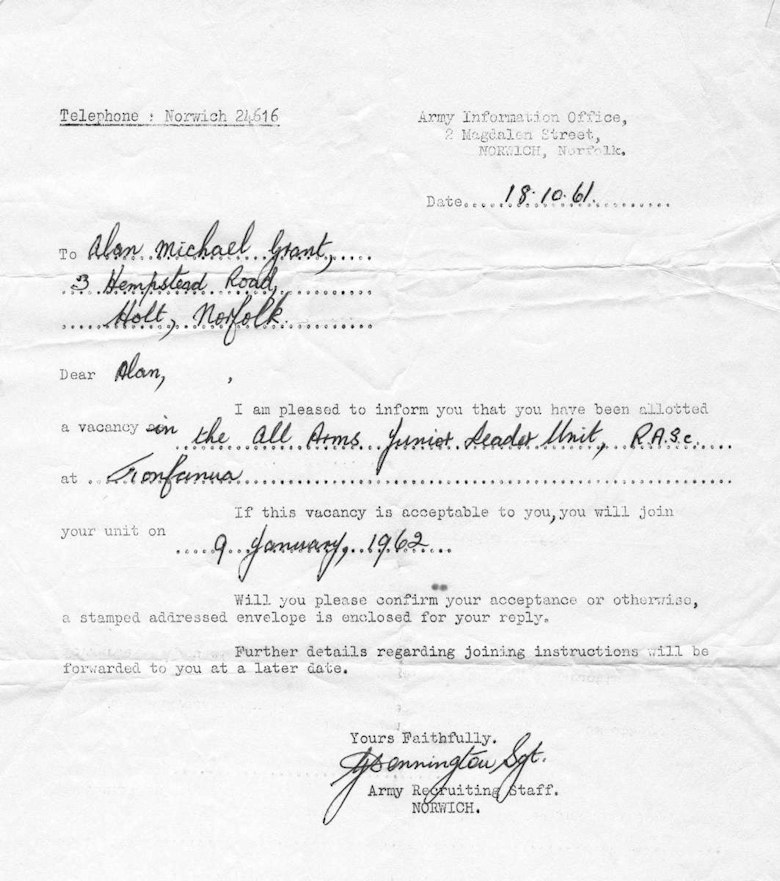 Telephone : Norwich 24616
Army Information Office,
2 Magdalen Street,
NORWICH, Norfolk.
Date 18.10.61.
To Alan Michael Grant,
3 Hempstead Road,
Holt, Norfolk.
Dear Alan, ,
I am pleased to inform you that you have been allotted
a vacancy in the All Arms Junior Leader Unit, R.A.S.C.
at Tonfanua
If this vacancy is acceptable to you,you will join
your unit on 9 January, 1962
Will you please confirm your acceptance or otherwise,
a stamped addressed envelope is enclosed for your reply.
Further details regarding joining instructions will be
forwarded to you at a later date.
Yours Faithfully.
Sgt.
Army Recruiting Staff.
NORWICH.